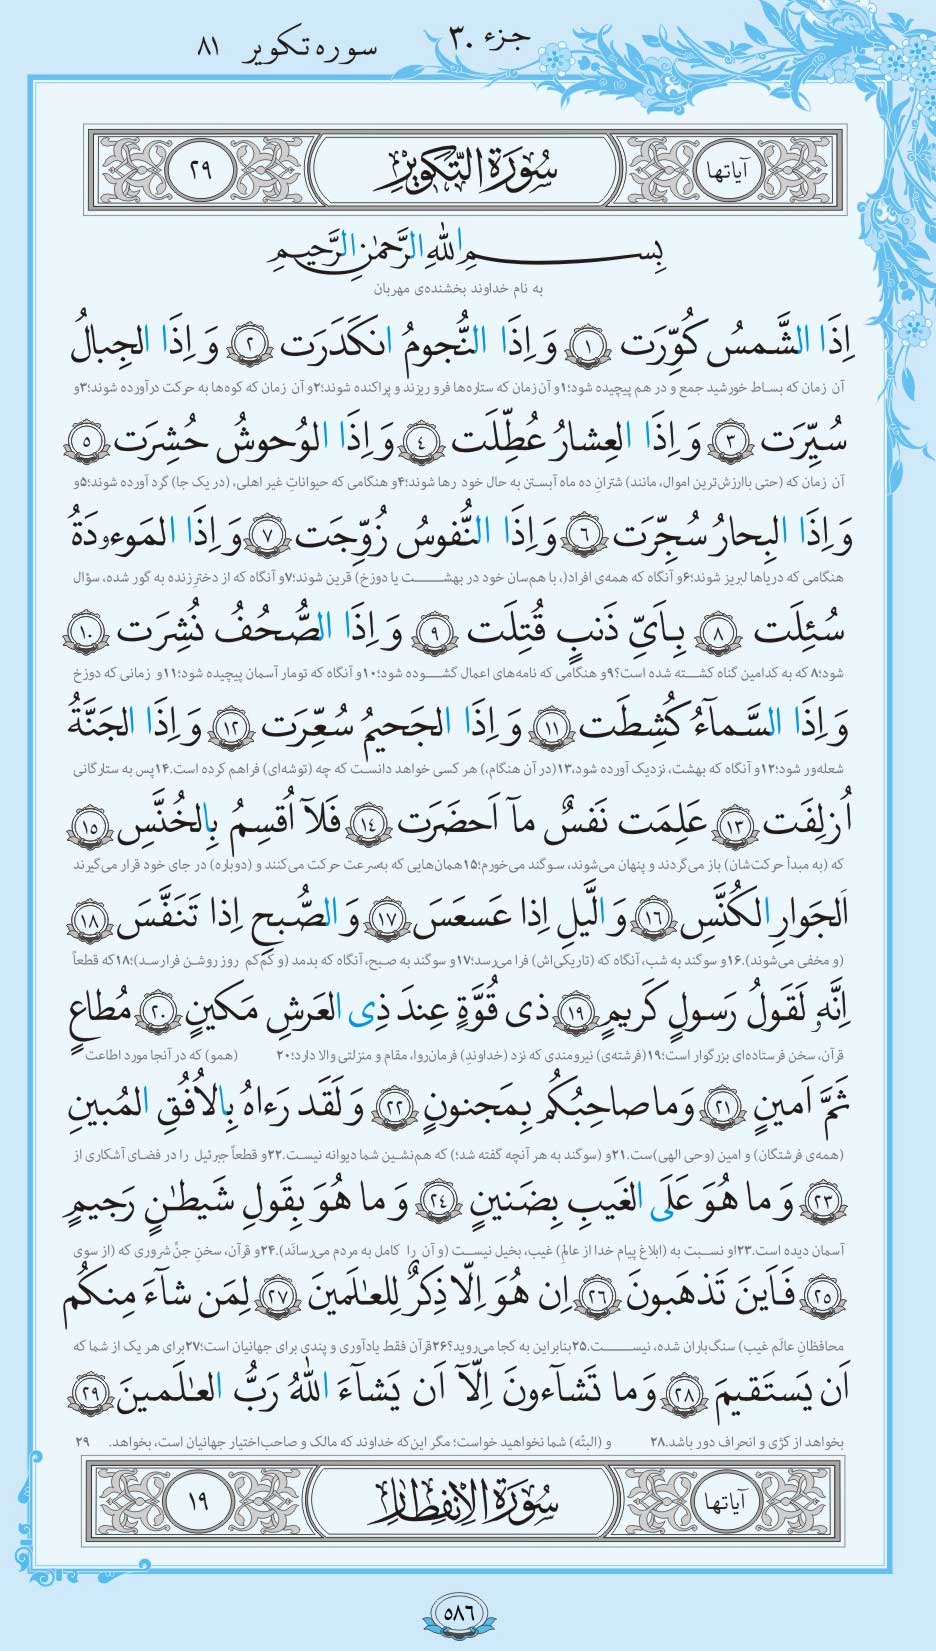 جزء ۳۰
سوره تکویر ۸۱
آیاتها سُورَةُ التَّکویرِ ۲۹
بِسمِ اللهِ الرَّحمٰنِ الرَّحیمِ
به نام خداوند بخشنده‌ی مهربان
اِذَا الشَّمسُ کُوِّرَت ﴿۱﴾ وَ اِذَا النُّجومُ انکَدَرَت ﴿۲﴾ وَ اِذَا الجِبالُ
آن زمان که بساط خورشید جمع و در هم پیچیده شود؛۱و آن زمان که ستاره‌ها فرو ریزند و پراکنده شوند؛۲و آن زمان که کوه‌ها به حرکت درآورده شوند؛۳و
سُیِّرَت ﴿۳﴾ وَ اِذَا العِشارُ عُطِّلَت ﴿۴﴾ وَ اِذَا الوُحوشُ حُشِرَت ﴿۵﴾
آن زمان که (حتی باارزش‌ترین اموال، مانند) شترانِ ده ماه آبستن به حال خود رها شوند؛۴و هنگامی که حیواناتِ غیر اهلی، (در یک جا) گرد آورده شوند؛۵و
وَ اِذَا البِحارُ سُجِّرَت ﴿۶﴾ وَ اِذَا النُّفوسُ زُوِّجَت ﴿۷﴾ وَ اِذَا المَوءودَةُ
هنگامی که دریاها لبریز شوند؛۶و آنگاه که همه‌ی افراد(، با هم‌سان خود در بهشت یا دوزخ) قرین شوند؛۷و آنگاه که از دخترِ زنده به گور شده، سؤال
سُئِلَت ﴿۸﴾ بِاَیِّ ذَنبٍ قُتِلَت ﴿۹﴾ وَ اِذَا الصُّحُفُ نُشِرَت ﴿۱۰﴾
شود؛۸که به کدامین گناه کشته شده است؟۹و هنگامی که نامه‌های اعمال گشوده شود؛۱۰و آنگاه که تومار آسمان پیچیده شود؛۱۱و زمانی که دوزخ
وَ اِذَا السَّماۤءُ کُشِطَت ﴿۱۱﴾ وَ اِذَا الجَحیمُ سُعِّرَت ﴿۱۲﴾ وَ اِذَا الجَنَّةُ
شعله‌ور شود؛۱۲و آنگاه که بهشت، نزدیک آورده شود،۱۳(در آن هنگام،) هر کسی خواهد دانست که چه (توشه‌ای) فراهم کرده است.۱۴پس به ستارگانی
اُزلِفَت ﴿۱۳﴾ عَلِمَت نَفسٌ مآ اَحضَرَت ﴿۱۴﴾ فَلآ اُقسِمُ بِالخُنَّسِ ﴿۱۵﴾
که (به مبدأ حرکت‌شان) باز می‌گردند و پنهان می‌شوند، سوگند می‌خورم؛۱۵همان‌هایی که به‌سرعت حرکت می‌کنند و (دوباره) در جای خود قرار می‌گیرند
اَلجَوارِ الکُنَّسِ ﴿۱۶﴾ وَ الَّیلِ اِذا عَسعَسَ ﴿۱۷﴾ وَ الصُّبحِ اِذا تَنَفَّسَ ﴿۱۸﴾
(و مخفی می‌شوند).۱۶و سوگند به شب، آنگاه که (تاریکی‌اش) فرا می‌رسد؛۱۷و سوگند به صبح، آنگاه که بدمد (و کم‌کم روز روشن فرا رسد)؛۱۸که قطعاً
اِنَّهو لَقَولُ رَسولٍ کَریمٍ ﴿۱۹﴾ ذی قُوَّةٍ عِندَ ذِی العَرشِ مَکینٍ ﴿۲۰﴾ مُطاعٍ
قرآن، سخن فرستاده‌ای بزرگوار است؛۱۹(فرشته‌ی) نیرومندی که نزد (خداوندِ) فرمان‌روا، مقام و منزلتی والا دارد؛۲۰ (همو) که در آنجا مورد اطاعت
ثَمَّ اَمینٍ ﴿۲۱﴾ وَ ما صاحِبُکُم بِمَجنونٍ ﴿۲۲﴾ وَ لَقَد رَءاهُ بِالاُفُقِ المُبینِ
(همه‌ی فرشتگان) و امین (وحی الهی)ست.۲۱و (سوگند به هر آنچه گفته شد؛) که هم‌نشین شما دیوانه نیست.۲۲و قطعاً جبرئیل را در فضای آشکاری از
﴿۲۳﴾ وَ ما هُوَ عَلَی الغَیبِ بِضَنینٍ ﴿۲۴﴾ وَ ما هُوَ بِقَولِ شَیطٰنٍ رَجیمٍ
آسمان دیده است.۲۳او نسبت به (ابلاغ پیام خدا از عالمِ) غیب، بخیل نیست (و آن را کامل به مردم می‌رسانَد).۲۴و قرآن، سخنِ جنّ شروری که (از سوی
﴿۲۵﴾ فَاَینَ تَذهَبونَ ﴿۲۶﴾ اِن هُوَ اِلّا ذِکرٌ لِلعٰلَمینَ ﴿۲۷﴾ لِمَن شآءَ مِنکُم
محافظانِ عالَمِ غیب) سنگ‌باران شده، نیست.۲۵بنابراین به کجا می‌روید؟۲۶قرآن فقط یادآوری و پندی برای جهانیان است؛۲۷برای هر یک از شما که
اَن یَستَقیمَ ﴿۲۸﴾ وَ ما تَشآءونَ اِلّآ اَن یَشآءَ اللهُ رَبُّ العٰلَمینَ ﴿۲۹﴾
بخواهد از کژی و انحراف دور باشد.۲۸ و (البتّه) شما نخواهید خواست؛ مگر این‌که خداوند که مالک و صاحب‌اختیار جهانیان است، بخواهد. ۲۹
آیاتها سُورَةُ الاِنفِطارِ ۱۹
۵۸۶